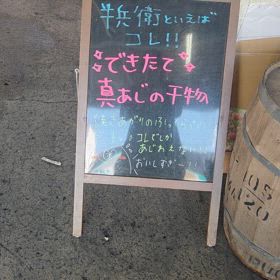 半兵衛といえば
コレ!!
できたて
真あじの干物
焼きあがりのふっ
コレでしか
あじわえない!!
おいしすぎー!!